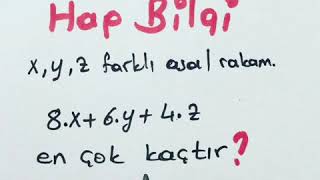 Hap Bilgi
x, y, z farklı asal rakam.
8.x + 6.y + 4.z
en çok kaçtır?